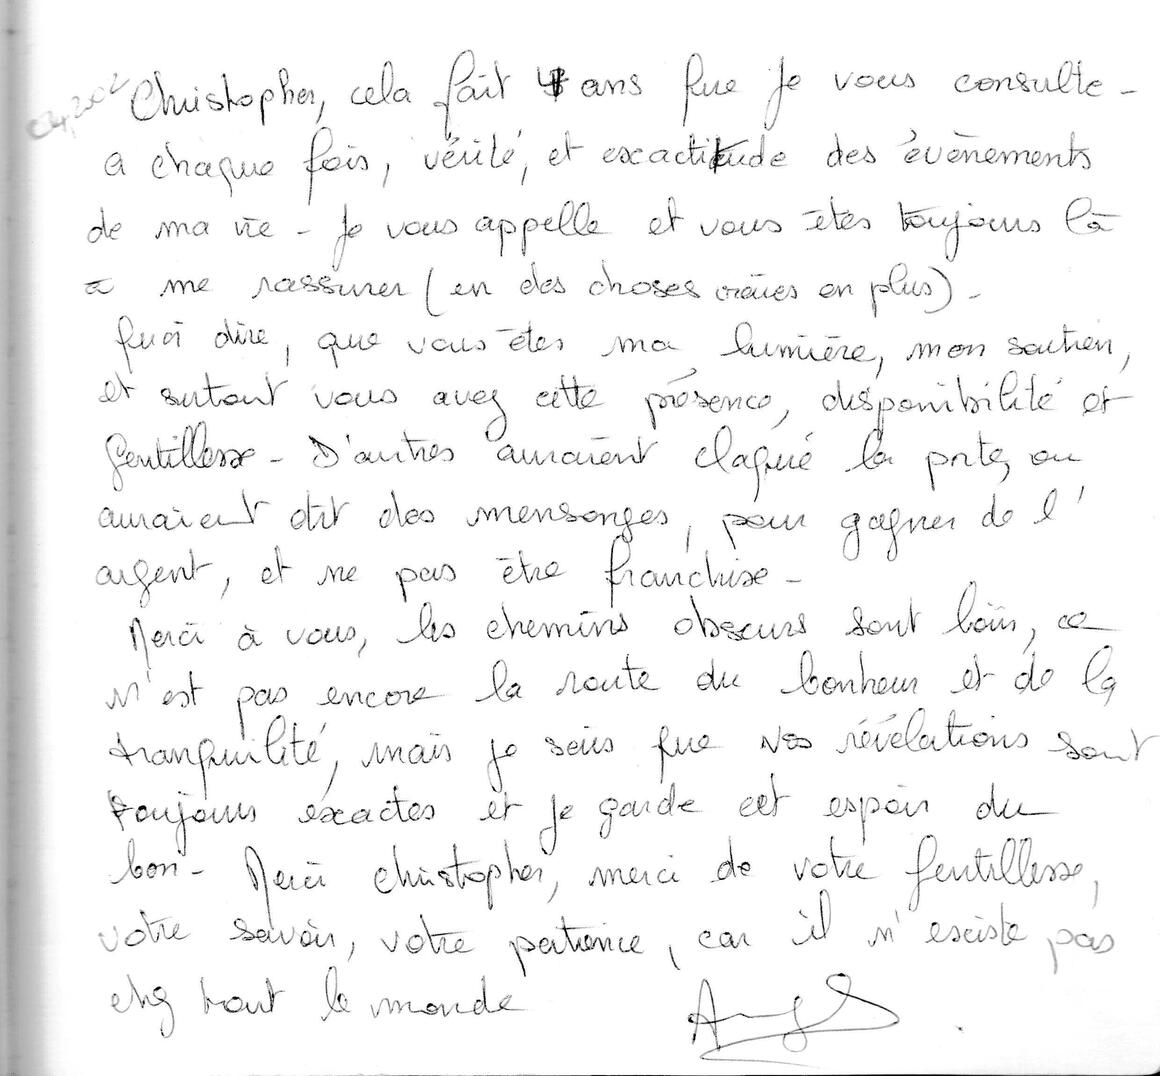 Christopher, cela fait 4 ans que je vous consulte -
a chaque fois, vérité, et exactitude des évènements
de ma vie - Je vous appelle et vous êtes toujours là
a me rassurer (en des choses vraies en plus) -
Quoi dire, que vous êtes ma lumière, mon soutien,
et surtout vous avez cette présence, disponibilité et
gentillesse - D'autres auraient claqué la porte, ou
auraient dit des mensonges, pour gagner de l'
argent, et ne pas être franchise -
Merci à vous, les chemins obscurs sont loin, ce
n'est pas encore la route du bonheur et de la
tranquilité, mais je sais que vos révélations sont
toujours exactes et je garde cet espoir du
bon - Merci Christopher, merci de votre gentillesse,
votre savoir, votre patience, car il n'existe pas
chez tout le monde